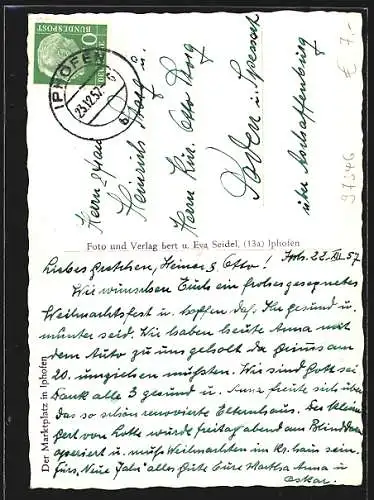 DEUTSCHE
BUNDESPOST
10
IPHOFEN
23.12.57
Herrn u. Frau
Heinrich u.
Herrn Kurt Otto
i. Spessart
über Aschaffenburg
€ 7,-
97346
Foto und Verlag Bert u. Eva Seidel, (13a) Iphofen
Der Marktplatz in Iphofen
Iph. 22.XII.57
Liebes Gretchen, Heiner & Otto!
Wir wünschen Euch ein frohes gesegnetes
Weihnachtsfest u. hoffen daß Ihr gesund u.
munter seid. Wir haben heute Anna mit
dem Auto zu uns geholt da wir am
20. umziehen mußten. Wir sind Gott sei
Dank alle 3 gesund u. Anna freute sich über
das so schön renovierte Elternhaus. Der kleine
Gert von Lotte wurde freitagabend am Blinddarm
operiert u. muß Weihnachten im Krs.haus sein.
Fürs Neue Jahr alles Gute Eure Martha Anna u.
Oskar.